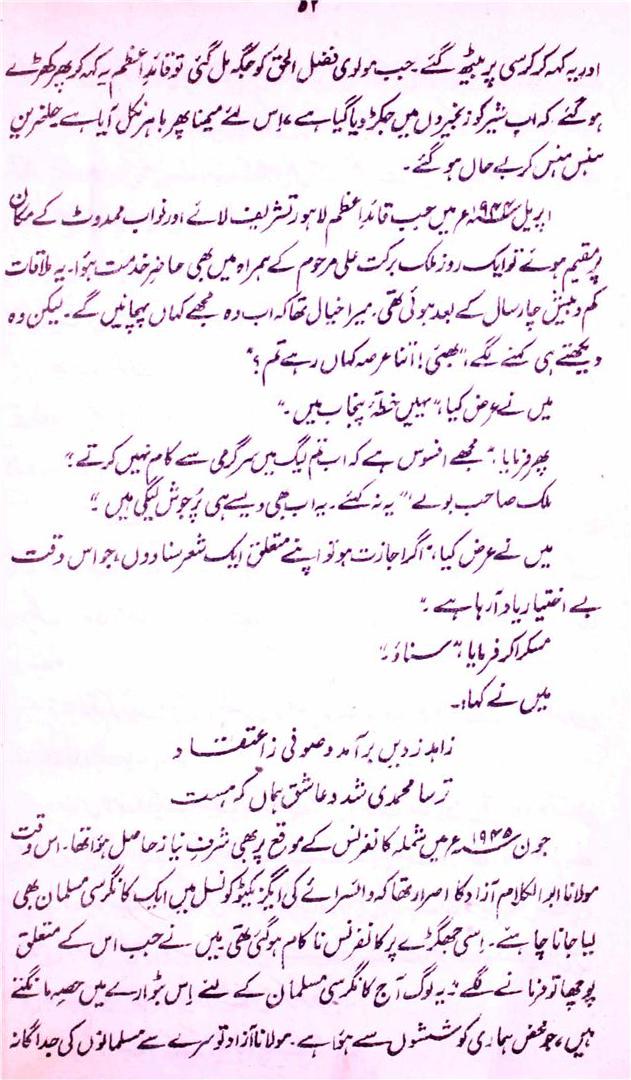 ۵۲
اور یہ کہہ کر کرسی پر بیٹھ گئے۔ جب مولوی فضل الحق کو جگہ مل گئی تو قائدِ اعظم یہ کہہ کر پھر کھڑے
ہو گئے کہ اب شیر کو زنجیروں میں جکڑ دیا گیا ہے، اِس لئے میمنا پھر باہر نکل آیا ہے حاضرین
ہنس ہنس کر بے حال ہو گئے۔
اپریل ۱۹۴۴ء میں جب قائدِ اعظم لاہور تشریف لائے اور نواب ممدوٹ کے مکان
پر مقیم ہوئے تو ایک روز ملک برکت علی مرحوم کے ہمراہ میں بھی حاضرِ خدمت ہؤا۔ یہ ملاقات
کم و بیش چار سال کے بعد ہوئی تھی۔ میرا خیال تھا کہ اب وہ مجھے کہاں پہچانیں گے۔ لیکن وہ
دیکھتے ہی کہنے لگے، "بھئی! اتنا عرصہ کہاں رہے تم؟"
میں نے عرض کیا، "یہیں خطۂ پنجاب میں۔"
پھر فرمایا، "مجھے افسوس ہے کہ اب تم لیگ میں سرگرمی سے کام نہیں کرتے۔"
ملک صاحب بولے، "یہ نہ کہئے۔ یہ اب بھی ویسے ہی پُرجوش لیگی ہیں۔"
میں نے عرض کیا، "اگر اجازت ہو تو اپنے متعلق ایک شعر سنا دوں، جو اس وقت
بے اختیار یاد آ رہا ہے۔"
مسکرا کر فرمایا، "سناؤ۔"
میں نے کہا:۔
زاہد ز دیں برآمد و صوفی ز اعتقاد
ترسا محمدی شد و عاشق ہماں کہ ہست
جون ۱۹۴۵ء میں شملہ کانفرنس کے موقع پر بھی شرفِ نیاز حاصل ہؤا تھا۔ اس وقت
مولانا ابوالکلام آزاد کا اصرار تھا کہ وائسرائے کی ایگزیکٹو کونسل میں ایک کانگرسی مسلمان بھی
لیا جانا چاہئے۔ اِسی جھگڑے پر کانفرنس ناکام ہو گئی تھی میں نے جب اس کے متعلق
پوچھا تو فرمانے لگے "یہ لوگ آج کانگرسی مسلمان کے لئے اِس بٹوارے میں حصہ مانگتے
ہیں، جو محض ہماری کوششوں سے ہؤا ہے۔ مولانا آزاد تو سرے سے مسلمانوں کی جداگانہ